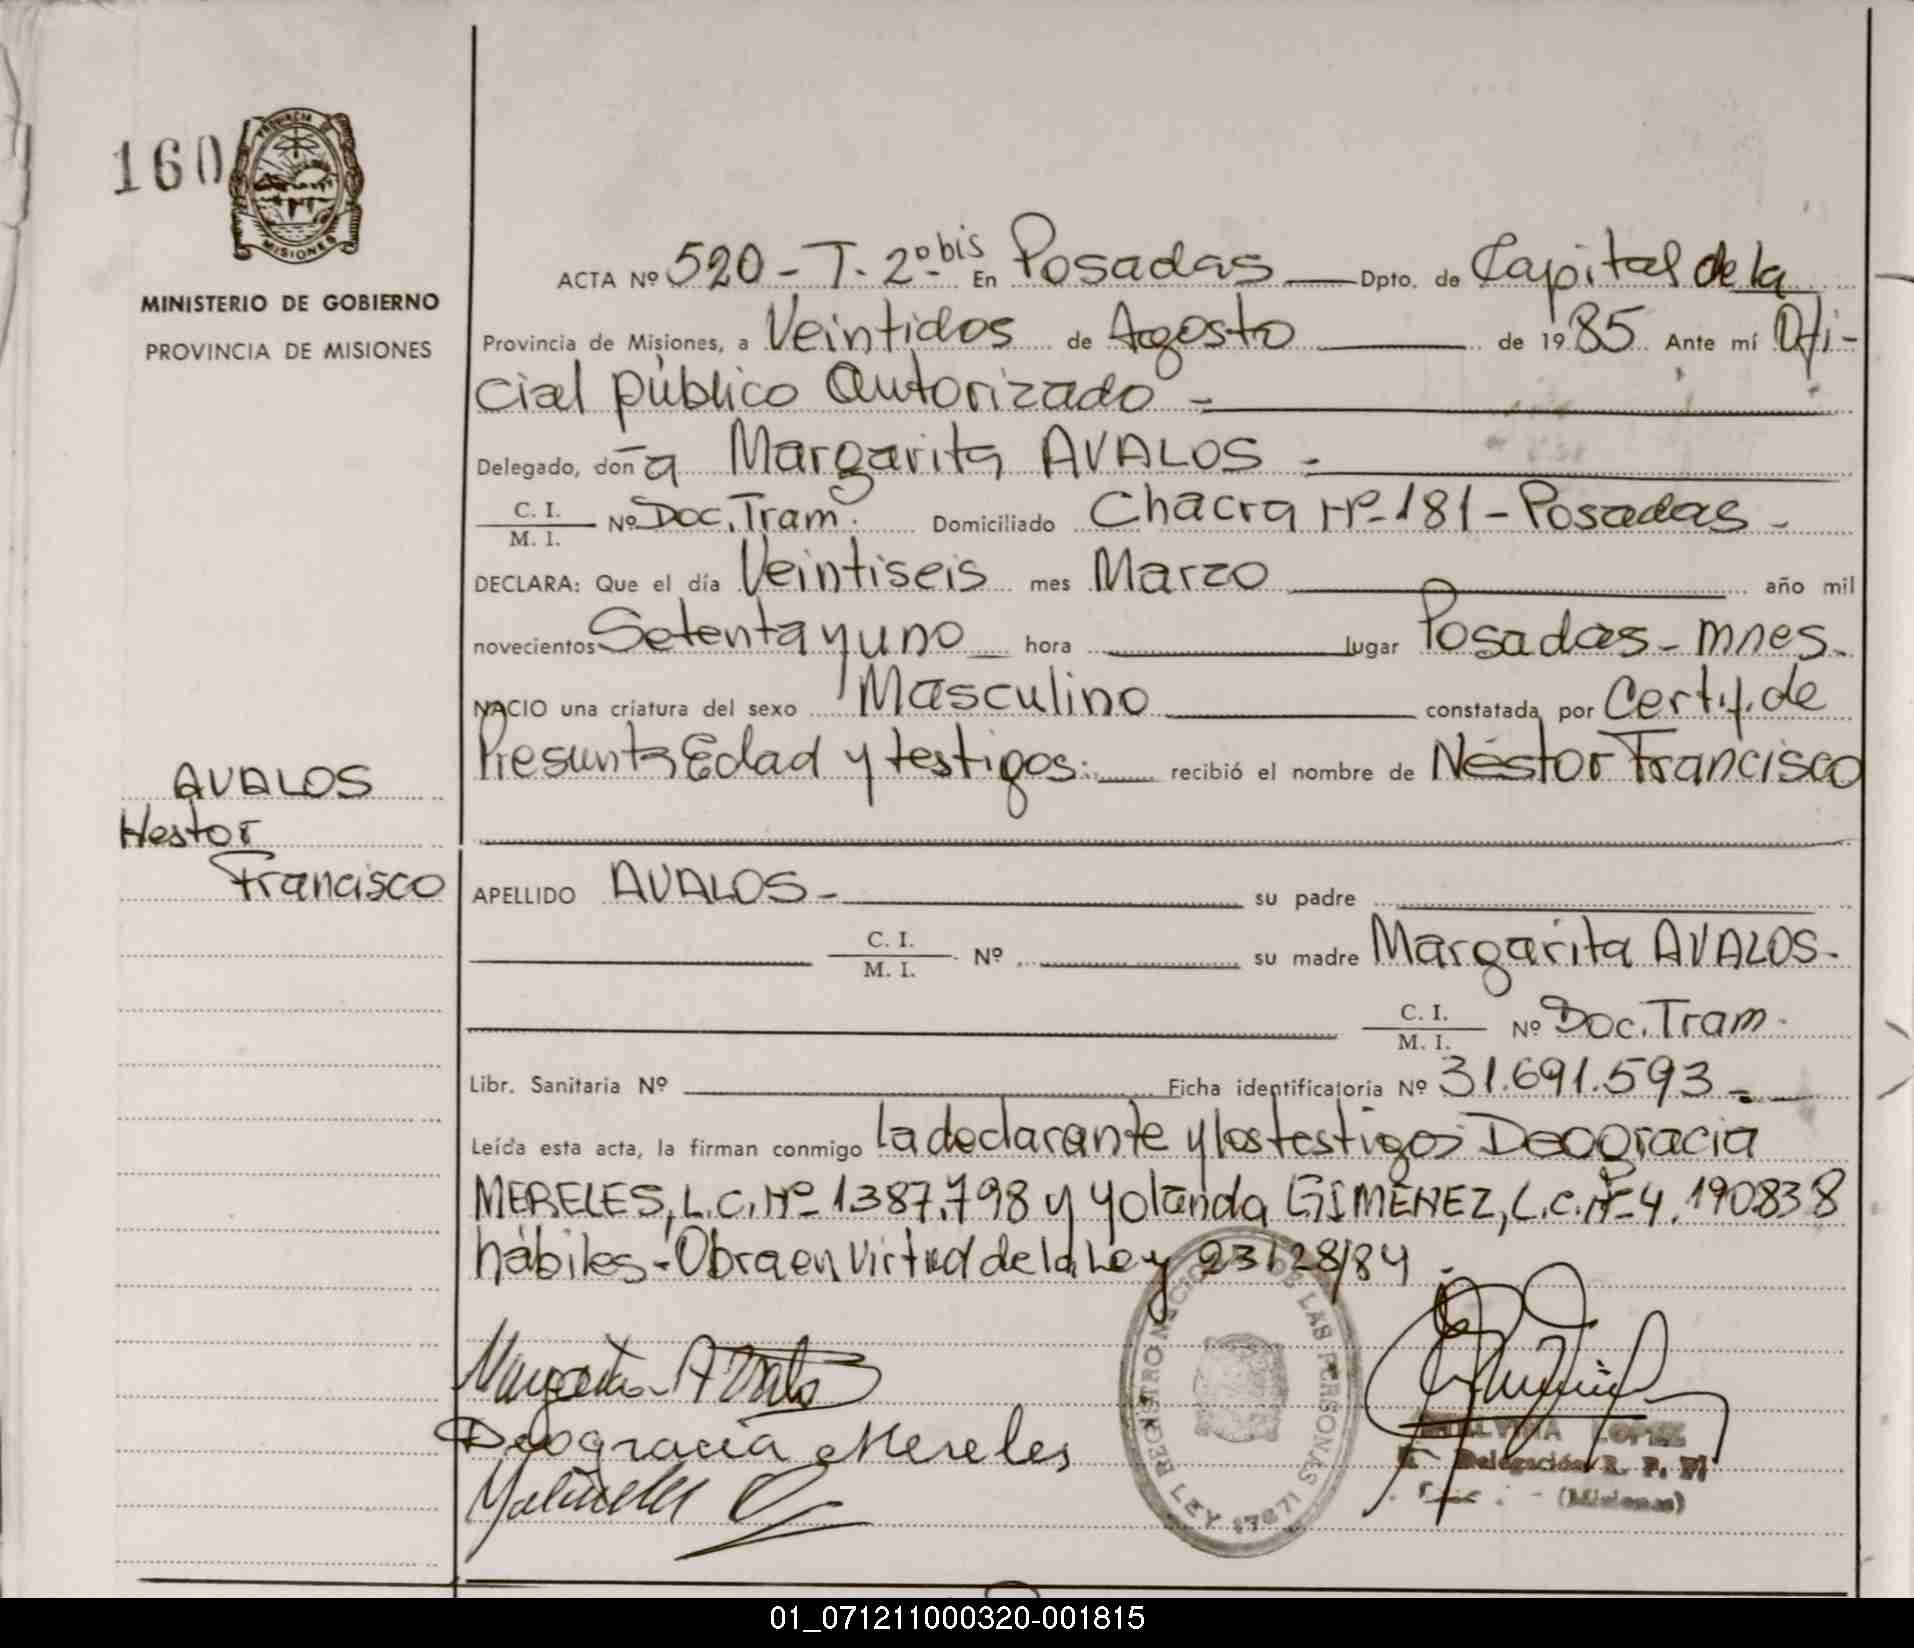 160
PROVINCIA DE
MISIONES
MINISTERIO DE GOBIERNO
PROVINCIA DE MISIONES
ACTA Nº 520 - T. 2º bis En Posadas Dpto. de Capital de la
Provincia de Misiones, a Veintidos de Agosto de 1985 Ante mí Ofi-
cial público Autorizado -
Delegado, don a Margarita AVALOS -
C. I.
M. I. Nº Doc. Tram. Domiciliado Chacra Nº 181 - Posadas -
DECLARA: Que el día Veintiseis mes Marzo año mil
novecientos Setenta y uno hora lugar Posadas - mnes.
NACIO una criatura del sexo Masculino constatada por Certif. de
Presunta Edad y testigos. recibió el nombre de Néstor Francisco
AVALOS
Nestor
Francisco
APELLIDO AVALOS - su padre
C. I.
M. I. Nº su madre Margarita AVALOS -
C. I.
M. I. Nº Doc. Tram.
Libr. Sanitaria Nº Ficha identificatoria Nº 31.691.593 -
Leída esta acta, la firman conmigo la declarante y los testigos Deogracia
MERELES, L.C. Nº 1387.798 y Yolanda GIMENEZ, L.C. Nº 4.190838
hábiles - Obra en Virtud de la Ley 23128/84 -
Margarita Avalos
Deogracia Mereles
REGISTRO NACIONAL DE LAS PERSONAS
LEY 17671
LOPEZ
Delegación R. P. P.
(Misiones)
01_071211000320-001815